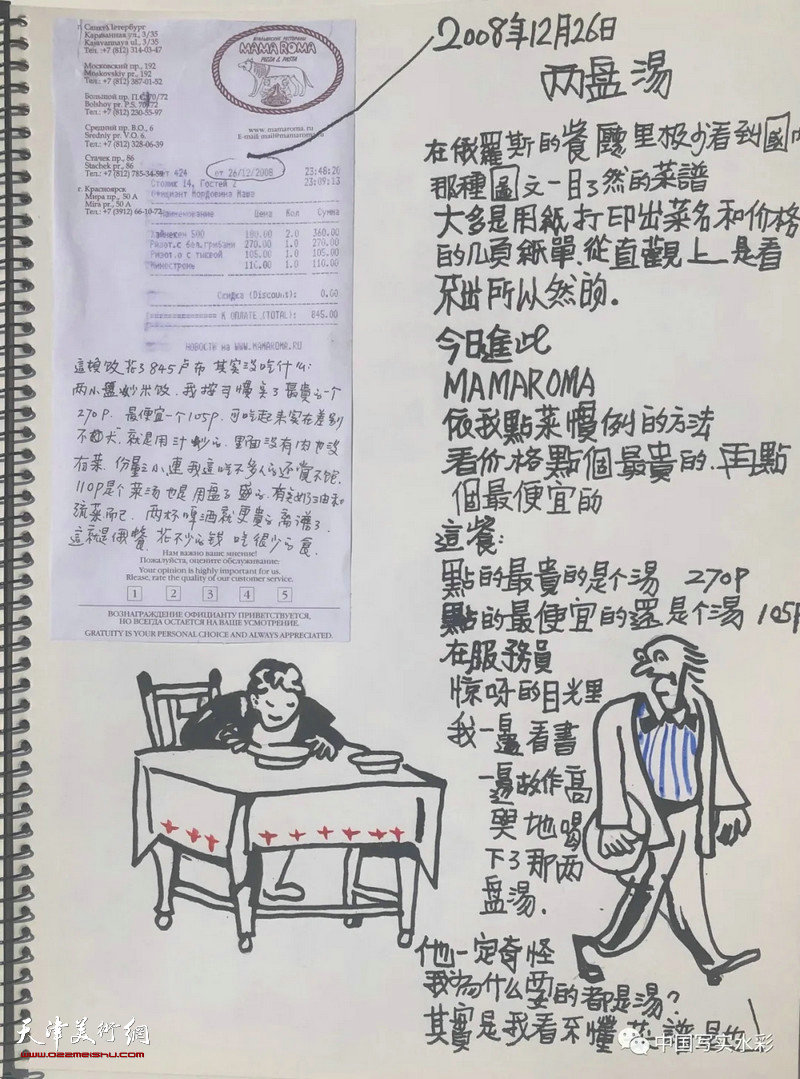 Санкт-Петербург
Караванная ул., 3/35
Karavannaya ul., 3/35
Тел.: +7 (812) 314-03-47
Московский пр., 192
Moskovskiy pr., 192
Тел.: +7 (812) 387-01-52
Большой пр. П.С. 70/72
Bolshoy pr. P.S. 70/72
Тел.: +7 (812) 230-55-97
Средний пр. В.О., 6
Sredniy pr. V.O. 6
Тел.: +7 (812) 328-06-39
Стачек пр., 86
Stachek pr., 86
Тел.: +7 (812) 785-34-59
г. Красноярск
Мира пр., 50 А
Mira pr., 50 A
Тел.: +7 (3912) 66-10-72
ИТАЛЬЯНСКИЕ РЕСТОРАНЫ
MAMA ROMA
PIZZA & PASTA
www.mamaroma.ru
E-mail: mail@mamaroma.ru
424 от 26/12/2008 23:48:26
Столик 14, Гостей 2 23:09:13
Официант Мордовина Маша
Наименование Цена Кол Сумма
Хайнекен 500 180.00 2.0 360.00
Ризот.с бел.грибами 270.00 1.0 270.00
Ризот.о с тыквой 105.00 1.0 105.00
Минестроне 110.00 1.0 110.00
Скидка (Discount): 0.00
К ОПЛАТЕ (TOTAL): 845.00
НОВОСТИ на WWW.MAMAROMA.RU
這頓饭花了845卢布 其实没吃什么:
两小盤炒米饭. 我按习惯买了最贵的一个
270P. 最便宜一个105P. 可吃起来实在差别
不大. 就是用汁炒的. 里面没有肉也没
有菜. 份量之小連我這吃不多人的还觉不饱.
110P是个菜汤也是用盘子盛的. 有奶油和
蔬菜而已. 两杯啤酒就更贵的离谱了.
這就是俄餐. 花不少的钱 吃很少的食.
Нам важно ваше мнение!
Пожалуйста, оцените обслуживание:
Your opinion is highly important for us.
Please, rate the quality of our customer service.
1 2 3 4 5
ВОЗНАГРАЖДЕНИЕ ОФИЦИАНТУ ПРИВЕТСТВУЕТСЯ,
НО ВСЕГДА ОСТАЕТСЯ НА ВАШЕ УСМОТРЕНИЕ.
GRATUITY IS YOUR PERSONAL CHOICE AND ALWAYS APPRECIATED.
2008年12月26日
两盘湯
在俄羅斯的餐廳里极少看到國内
那種圖文一目了然的菜譜
大多是用紙打印出菜名和价格
的几頁紙單.從直觀上是看
不出所以然的.
今日進此
MAMAROMA
依我點菜慣例的方法
看价格點個最貴的.再點
個最便宜的
這餐:
點的最貴的是个湯 270P
點的最便宜的還是个湯 105P
在服務員
惊呀的目光里
我一邊看書
一邊故作高
興地喝
下了那两
盘湯.
他一定奇怪
我为什么要的都是湯?
其實是我看不懂菜譜
天津美術網
www.022meishu.com
中国写实水彩